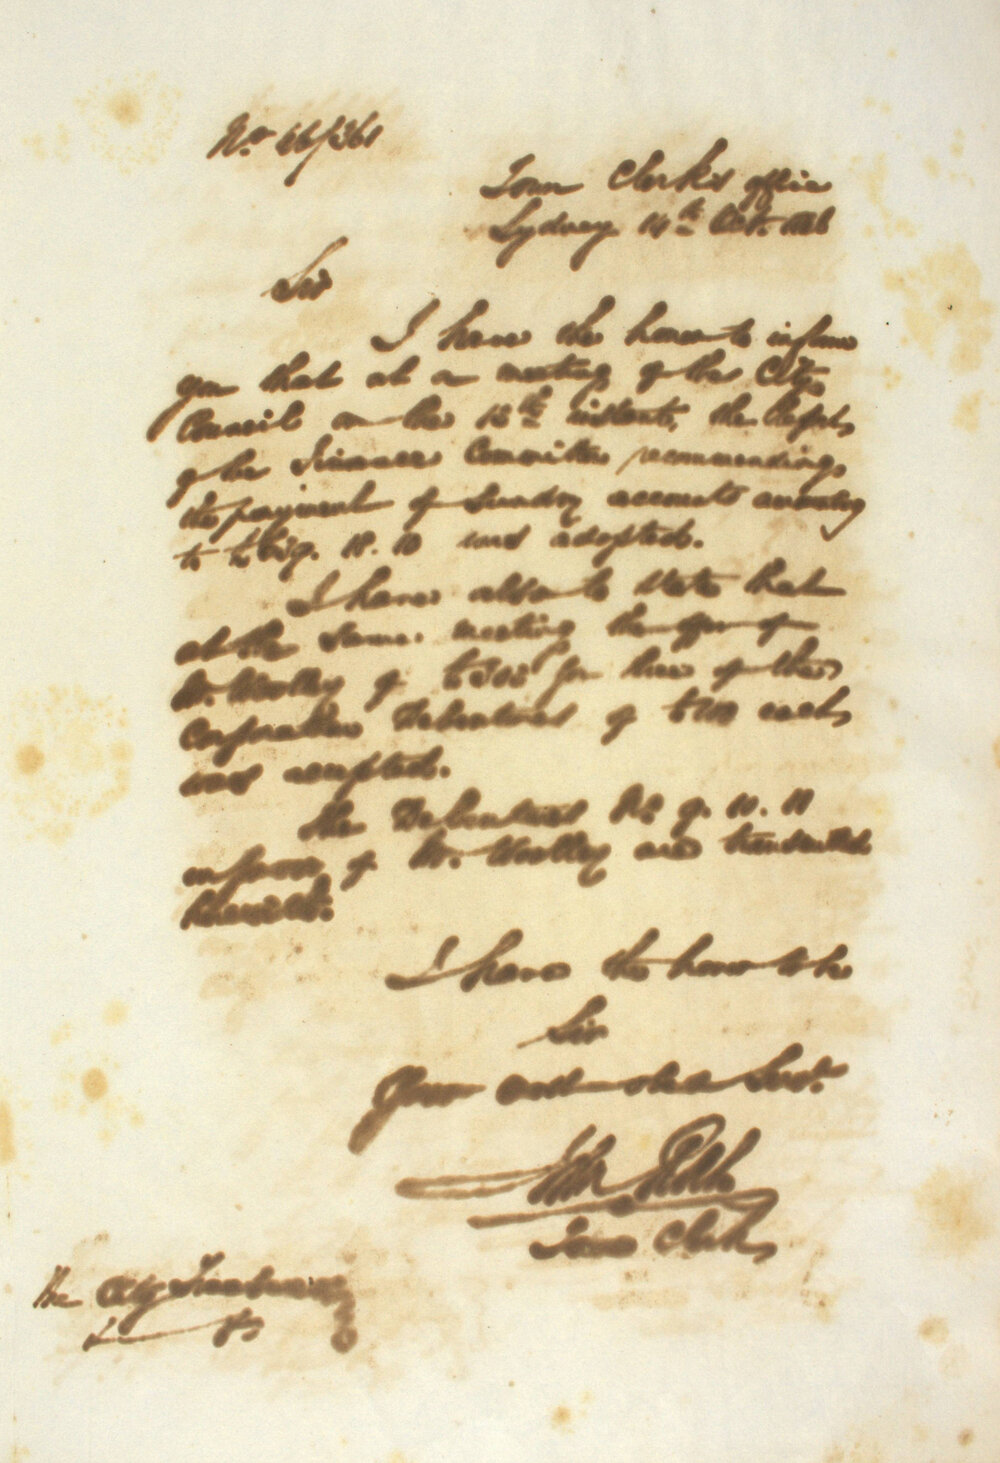 No. 46/361
Town Clerk's Office
Sydney 14th Oct. 1846
Sir
I have the honor to inform
you that at a meeting of the City
Council on the 12th instant, the Report
of the Finance Committee recommending
the payment of Sundry accounts amounting
to 18. 10 was adopted.
I have also to state that
at the same meeting the offer of
Mr. Woolley of for three of the
Corporation Debentures of £100 each,
was accepted.
The Debentures No. 9. 10. 11
in favor of Mr. Woolley are transmitted
herewith.
I have the honor to be
Sir
Your most obdt Servt.
Town Clerk,
The City Treasurer